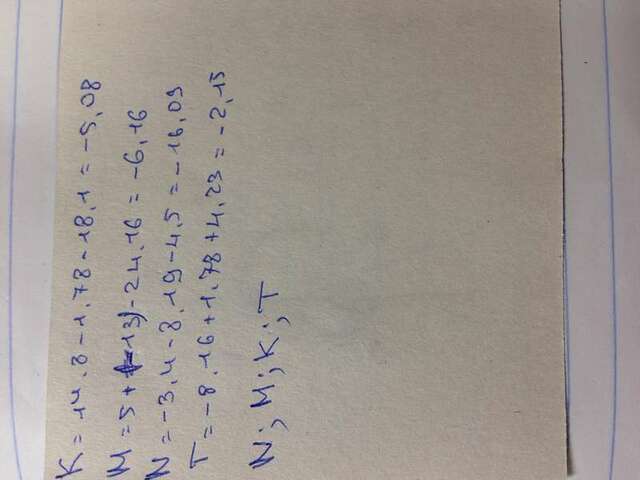 K = 14.8 - 1.78 - 18.1 = -5,08
M = 5 + (-13) - 24.16 = -6,16
N = -3,4 - 8.19 - 4,5 = -16,09
T = -8.16 + 1.78 + 4.23 = -2,15
N; M; K; T